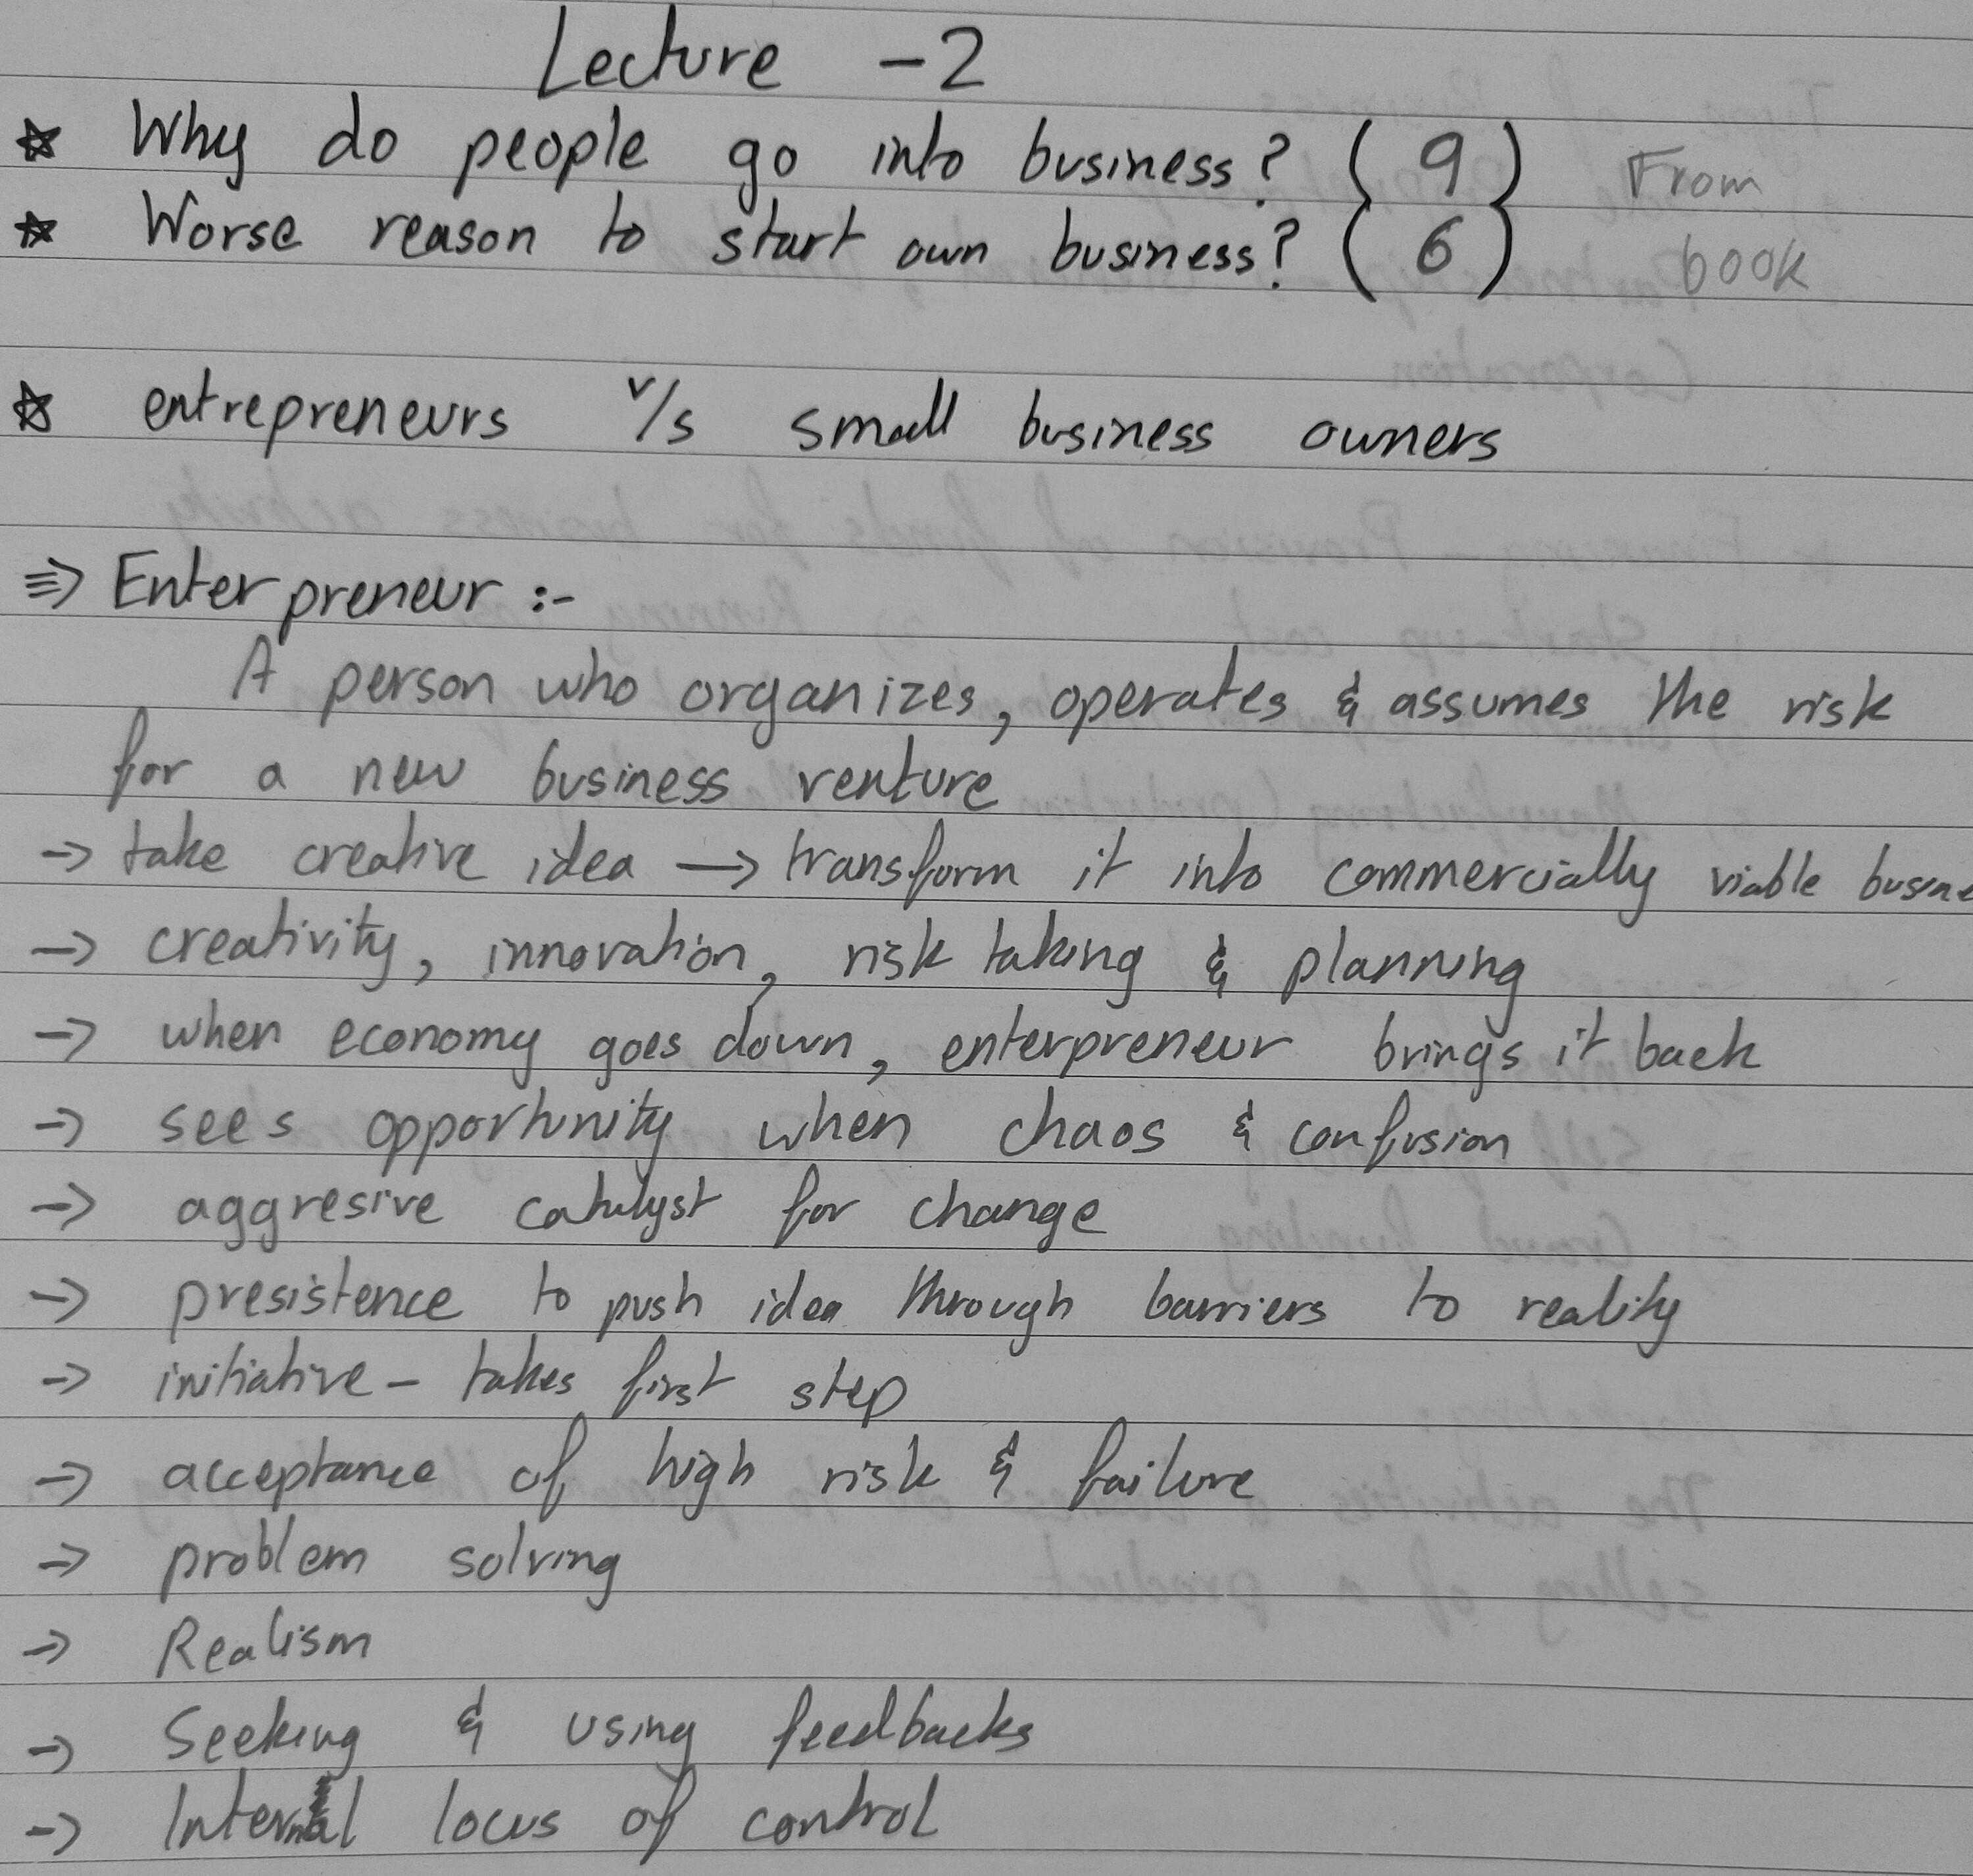 Lecture - 2
☆ Why do people go into business? { 9 } From
☆ Worse reason to start own business? { 6 } book
☆ entrepreneurs v/s small business owners
⇒ Enterpreneur :-
A person who organizes, operates & assumes the risk
for a new business venture
→ take creative idea → transform it into commercially viable busine
→ creativity, innovation, risk taking & planning
→ when economy goes down, enterpreneur brings it back
→ sees opportunity when chaos & confusion
→ aggresive catalyst for change
→ presistence to push idea through barriers to reality
→ initiative - takes first step
→ acceptance of high risk & failure
→ problem solving
→ Realism
→ Seeking & using feedbacks
→ Internal locus of control